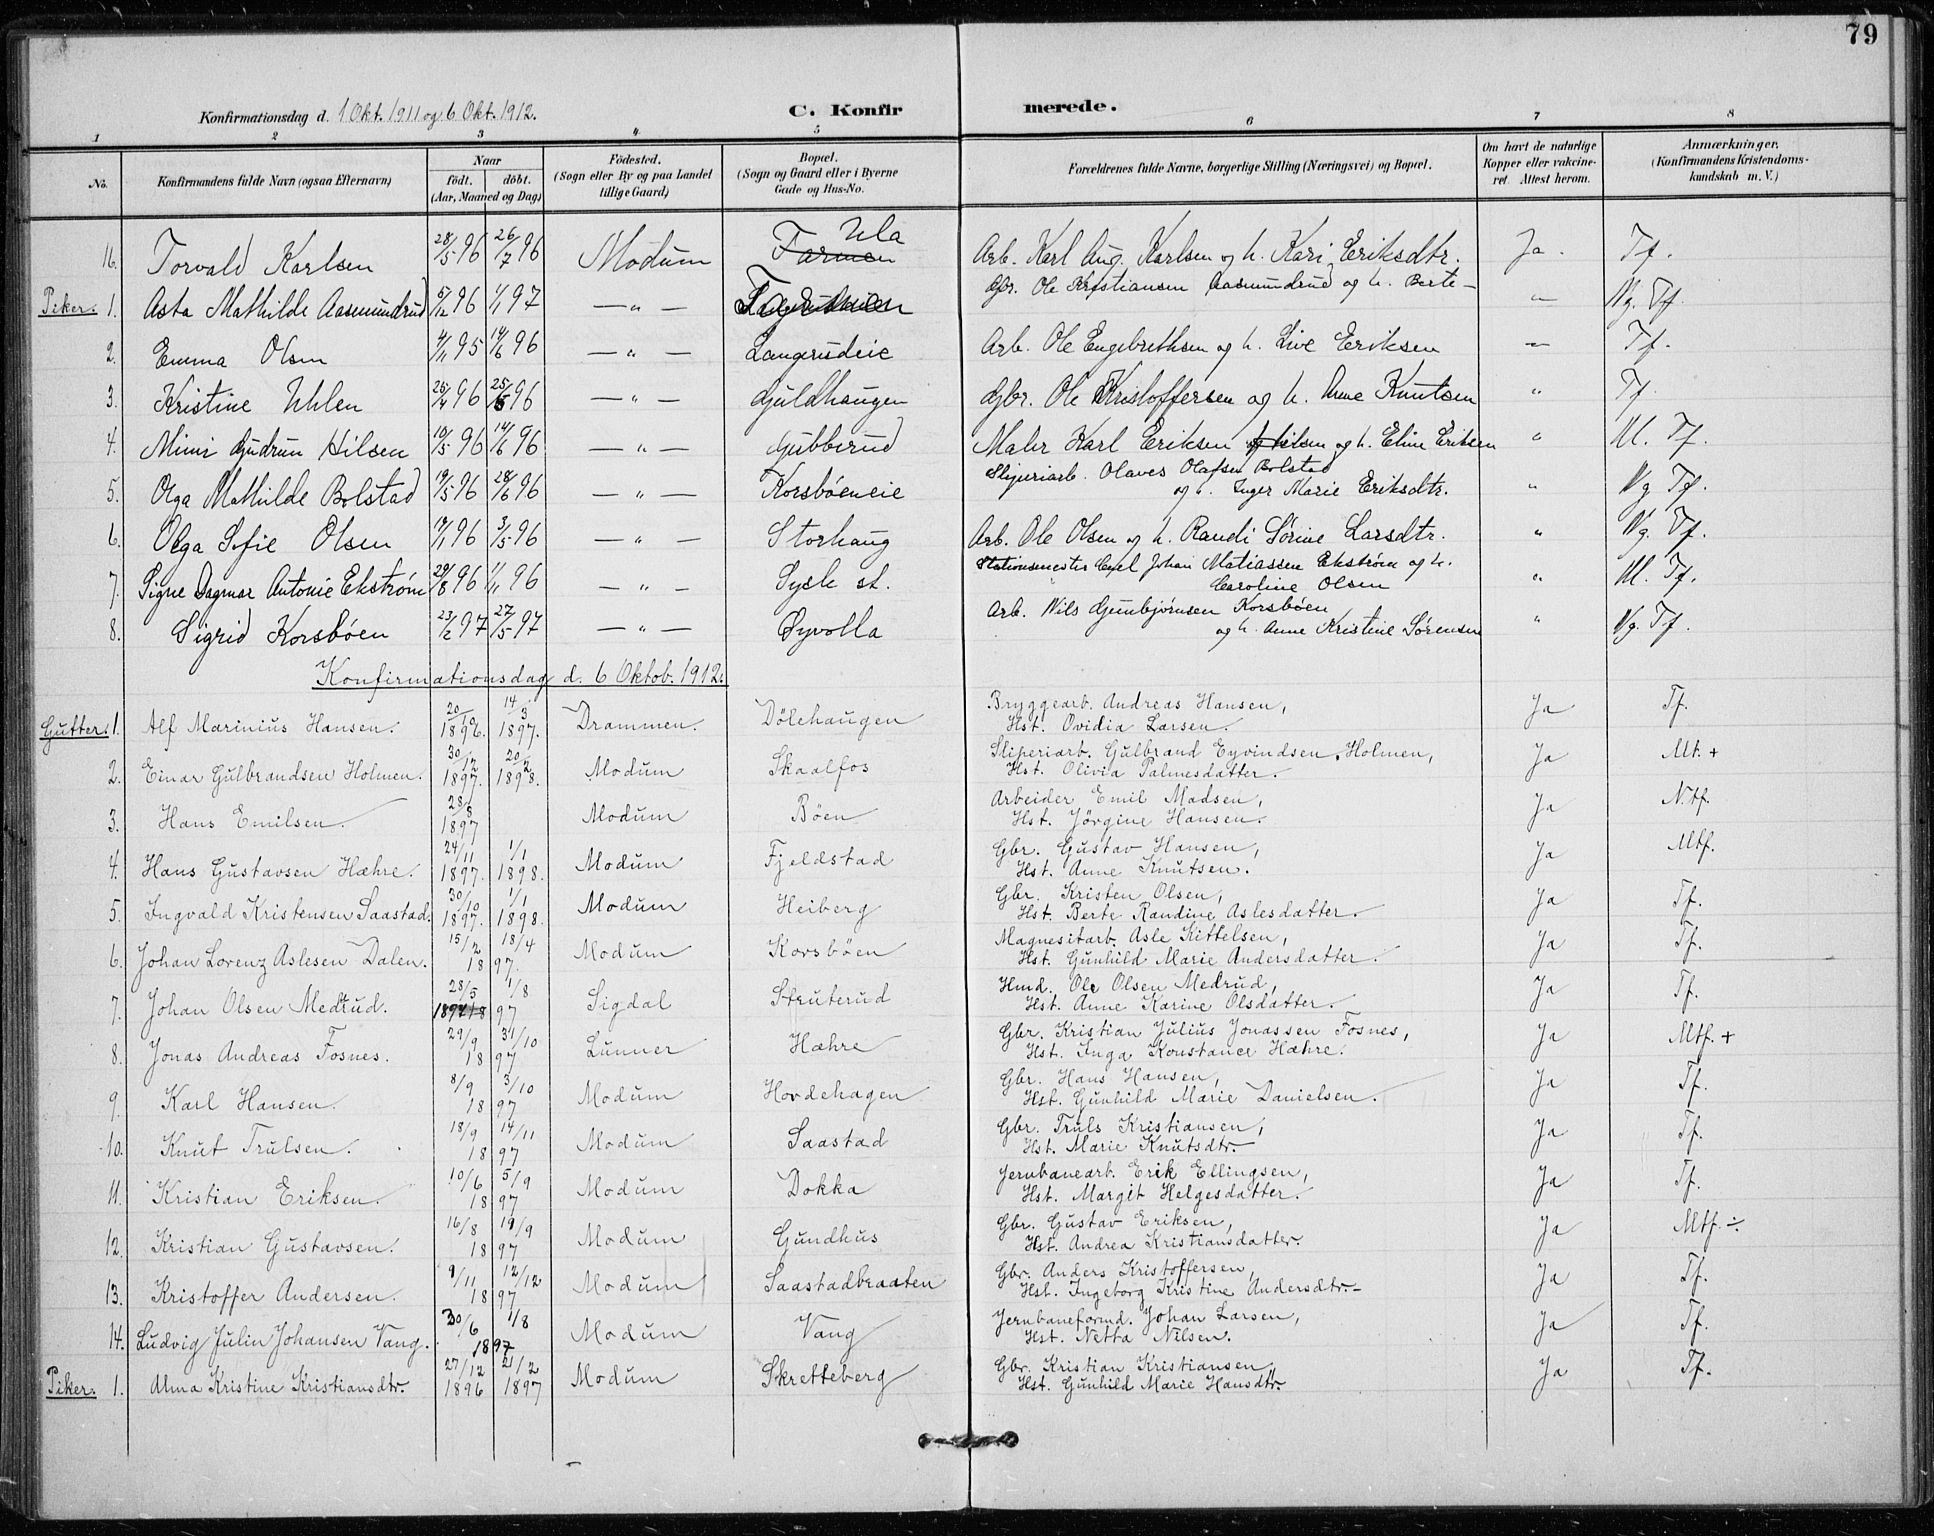 79
Konfirmationsdag d. 1 Okt. 1911 og 6 Okt. 1912. C. Konfirmerede.
1 2 3 4 5 6 7 8
No. Konfirmandens fulde Navn (ogsaa Efternavn) Naar født, døbt. (Aar, Maaned og Dag) Fødested. (Sogn eller By og paa Landet tillige Gaard) Bopæl. (Sogn og Gaard eller i Byerne Gade og Hus-No. Forældrenes fulde Navne, borgerlige Stilling (Næringsvei) og Bopæl. Om havt de naturlige Kopper eller vakcineret. Attest herom. Anmærkninger. (Konfirmandens Kristendomskundskab m. V.)
16. Torvald Karlsen 28/5 96 26/7 96 Modum Farmen Ula Arb. Karl Aug. Karlsen og h. Kari Eriksdtr. Ja. Tf.
Piker. 1. Asta Mathilde Aasmundrud 5/12 96 1/1 97 — " — Gbr. Ole Kristiansen Aasmundrud og h. Berte — " Ng. Tf.
2. Emma Olsen 4/11 95 14/6 96 — " — Langerudeie Arb. Ole Engebrethsen og h. Live Eriksen " Tf.
3. Kristine Uhlen 26/4 96 25/5 96 — " — Guldhaugen Gbr. Ole Kristoffersen og h. Anne Knutsen " Tf.
4. Mimi Gudrun Hilsen 10/5 96 14/6 96 — " — Gubberud Maler Karl Eriksen Hilsen og h. Eline Eriksen " M. Tf.
5. Olga Mathilde Bolstad 19/5 96 28/6 96 — " — Korsbøeneie Sliperiarb. Olaves Olafsen Bolstad
og h. Inger Marie Eriksdtr. " Ng Tf.
6. Olga Sofie Olsen 17/1 96 3/5 96 — " — Storhaug Arb. Ole Olsen og h. Randi Sørine Larsdtr. " Ng. Tf.
7. Signe Dagmar Antonie Ekstrøm 29/8 96 1/11 96 — " — Sysle st. Stationsmester Carl Johan Matiassen Ekstrøm og h.
Caroline Olsen " M. Tf.
8. Sigrid Korsbøen 23/2 97 27/5 97 — " — Øyvolla Arb. Nils Gunbjørnsen Korsbøen
og h. Anne Kristine Sørensen " Ng. Tf.
Konfirmationsdag d. 6 Oktob. 1912.
Gutter. 1. Alf Marinius Hansen. 1896. 14/3 1897. Drammen. Dölehaugen Bryggearb. Andreas Hansen,
Hst. Ovidia Larsen. Ja Tf.
2. Einar Gulbrandsen Holmen. 30/12 1897. 20/2 1898. Modum Skaalfos Sliperiarb. Gulbrand Eyvindsen Holmen,
Hst. Olivia Palmesdatter. Ja Mt. +
3. Hans Emilsen. 28/8 1897 Modum Böen Arbeider Emil Madsen,
Hst. Jörgine Hansen. Ja N.tf.
4. Hans Gustavsen Hæhre. 24/11 1897. 1/1 1898. Modum Fjeldstad Gbr. Gustav Hansen,
Hst. Anne Knutsen. Ja Mtf.
5. Ingvald Kristensen Saastad. 30/10 1897. 1/1 1898. Modum Heiberg Gbr. Kristen Olsen,
Hst. Berte Randine Aslesdatter. Ja Tf.
6. Johan Lorenz Aslesen Dalen. 15/2 18/4 1897. Modum Korsböen Magnesitarb. Asle Kittelsen,
Hst. Gunhild Marie Andersdatter. Ja Tf.
7. Johan Olsen Medrud. 28/5 1/8 1897 Sigdal Struterud Hmd. Ole Olsen Medrud,
Hst. Anne Karine Olsdatter. Ja Tf.
8. Jonas Andreas Fosnes. 29/9 31/10 1897 Lunner Hæhre Gbr. Kristian Julius Jonassen Fosnes,
Hst. Inga Konstance Hæhre. Ja Mtf. +
9. Karl Hansen. 8/9 3/10 1897 Modum Hovdehagen Gbr. Hans Hansen,
Hst. Gunhild Marie Danielsen. Ja Tf.
10. Knut Trulsen. 18/9 14/11 1897 Modum Saastad Gbr. Truls Kristiansen,
Hst. Marie Knutsdtr. Ja Tf.
11. Kristian Eriksen. 10/6 5/9 1897 Modum Dokka Jernbanearb. Erik Ellingsen,
Hst. Margit Helgesdatter. Ja Tf.
12. Kristian Gustavsen. 16/8 19/9 1897 Modum Gundhus Gbr. Gustav Eriksen,
Hst. Andrea Kristiansdatter. Ja Mtf. ÷
13. Kristoffer Andersen. 9/11 12/12 1897 Modum Saastadbraaten Gbr. Anders Kristoffersen,
Hst. Ingeborg Kristine Andersdtr. Ja Tf.
14. Ludvig Julin Johansen Vang. 30/6 1/8 1897 Modum Vang Jernbaneformd. Johan Larsen,
Hst. Netta Nilsen. Ja Tf.
Piker. 1. Alma Kristine Kristiansdtr. 27/12 1896 21/2 1897 Modum Skretteberg Gbr. Kristian Kristiansen,
Hst. Gunhild Marie Hansdtr. Ja Tf.